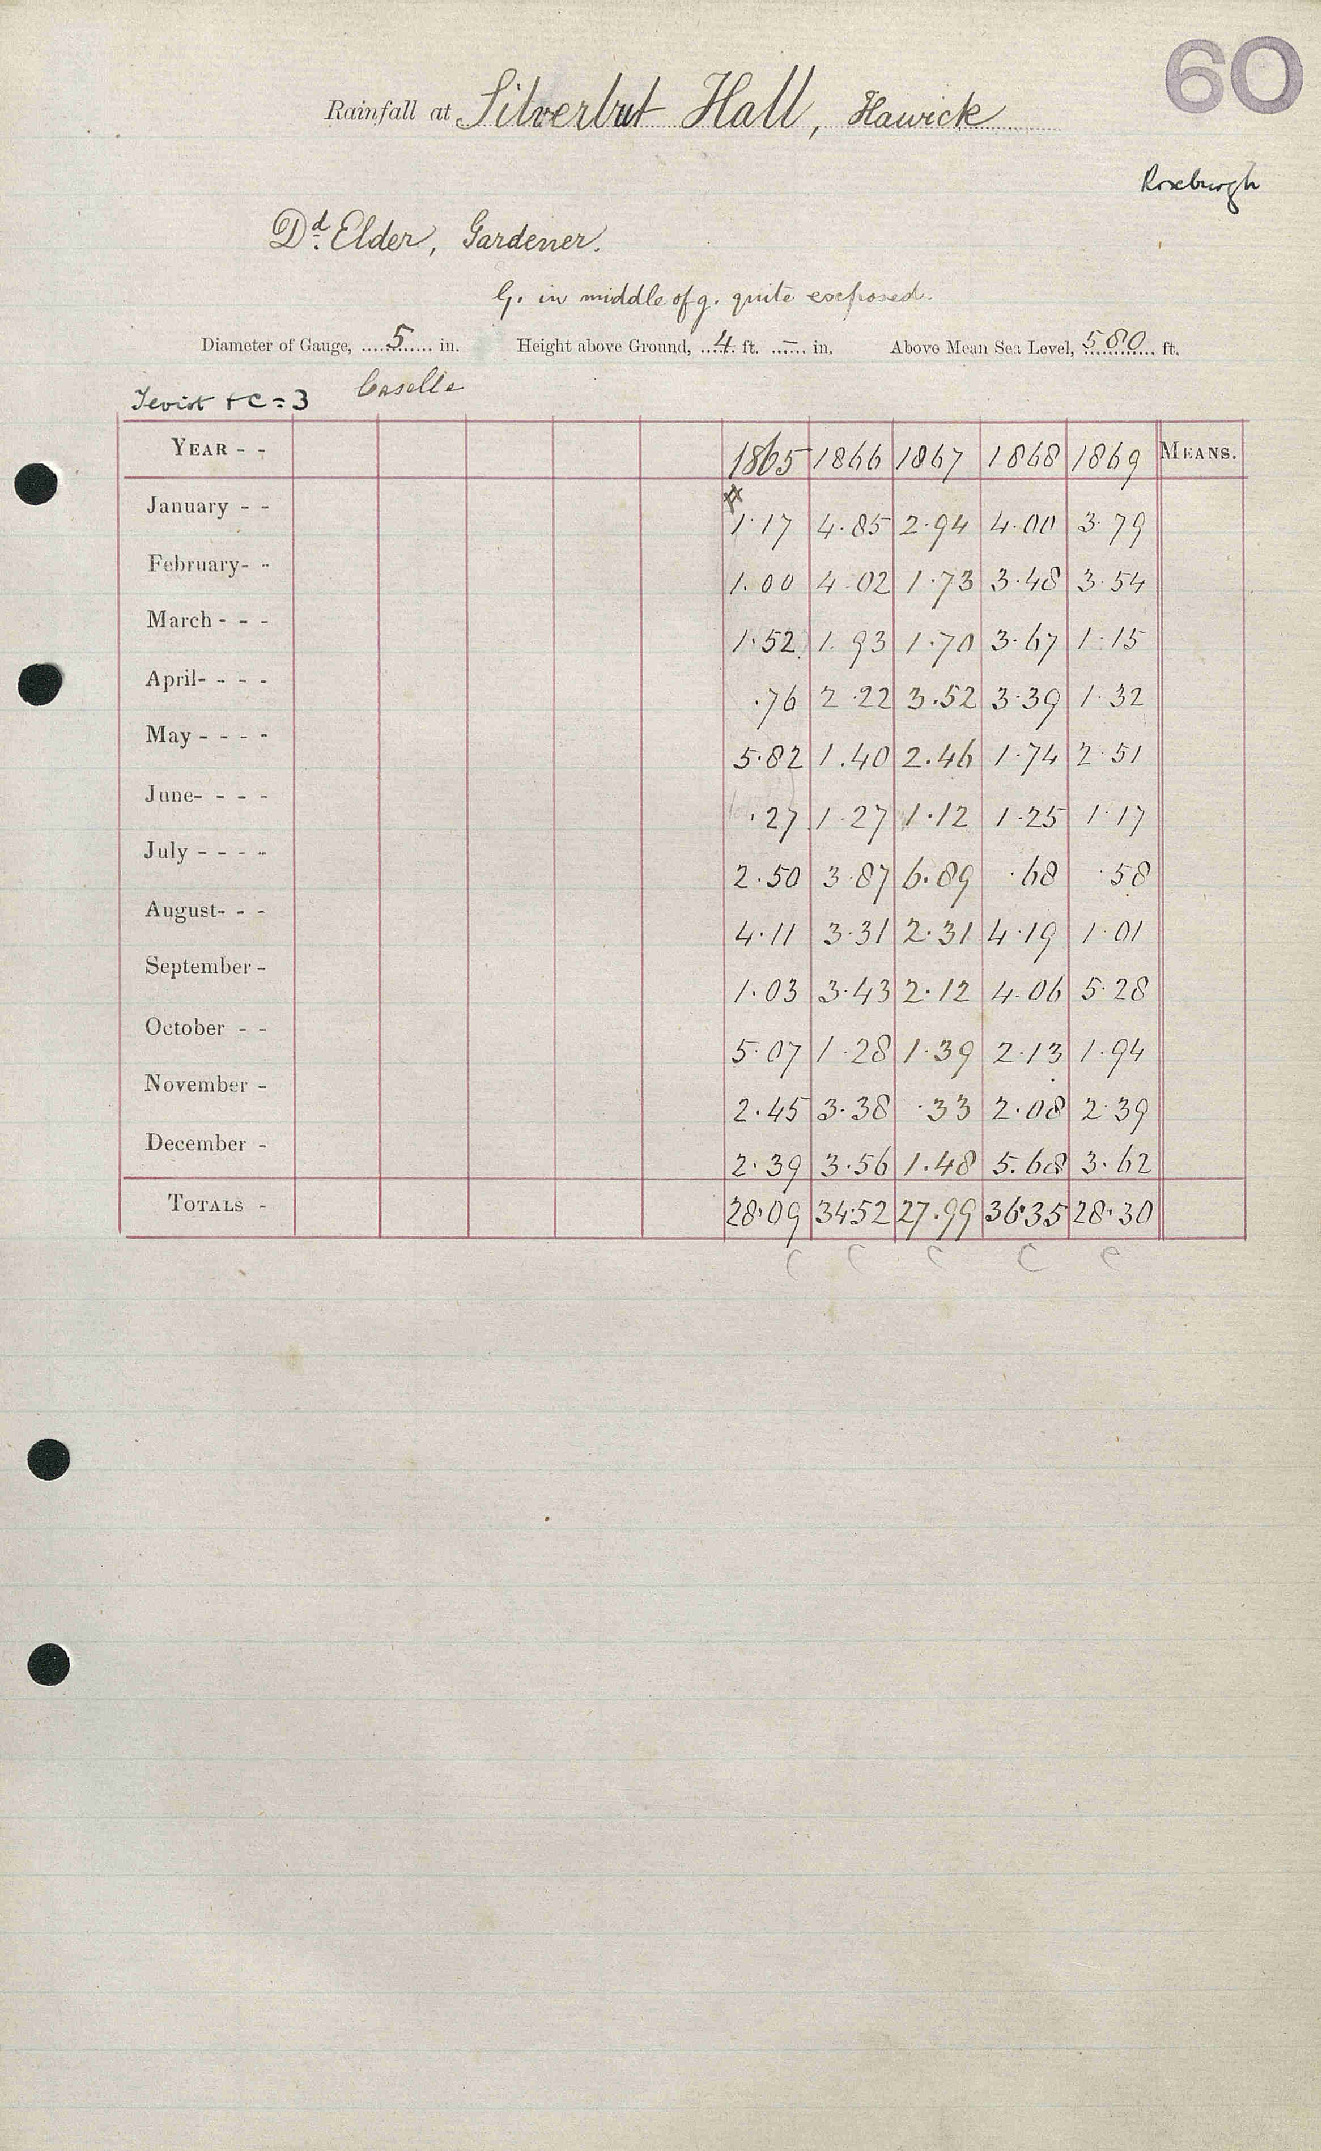 60
Rainfall at Silverbut Hall, Hawick
Roxburgh
Dd. Elder, Gardener.
G. in middle of g. quite exposed.
Diameter of Gauge, 5 in. Height above Ground, 4 ft. - in. Above Mean Sea Level, 580 ft.
Teviot + C = 3 Casella
YEAR - - 1865 1866 1867 1868 1869 MEANS.
January - - 1.17 4.85 2.94 4.00 3.79
February- - 1.00 4.02 1.73 3.48 3.54
March - - - 1.52 1.93 1.70 3.67 1.15
April- - - - .76 2.22 3.52 3.39 1.32
May - - - - 5.82 1.40 2.46 1.74 2.51
June- - - - .27 1.27 1.12 1.25 1.17
July - - - - 2.50 3.87 6.89 .68 .58
August- - - 4.11 3.31 2.31 4.19 1.01
September - 1.03 3.43 2.12 4.06 5.28
October - - 5.07 1.28 1.39 2.13 1.94
November - 2.45 3.38 .33 2.08 2.39
December - 2.39 3.56 1.48 5.68 3.62
TOTALS - 28.09 34.52 27.99 36.35 28.30
C C C C C